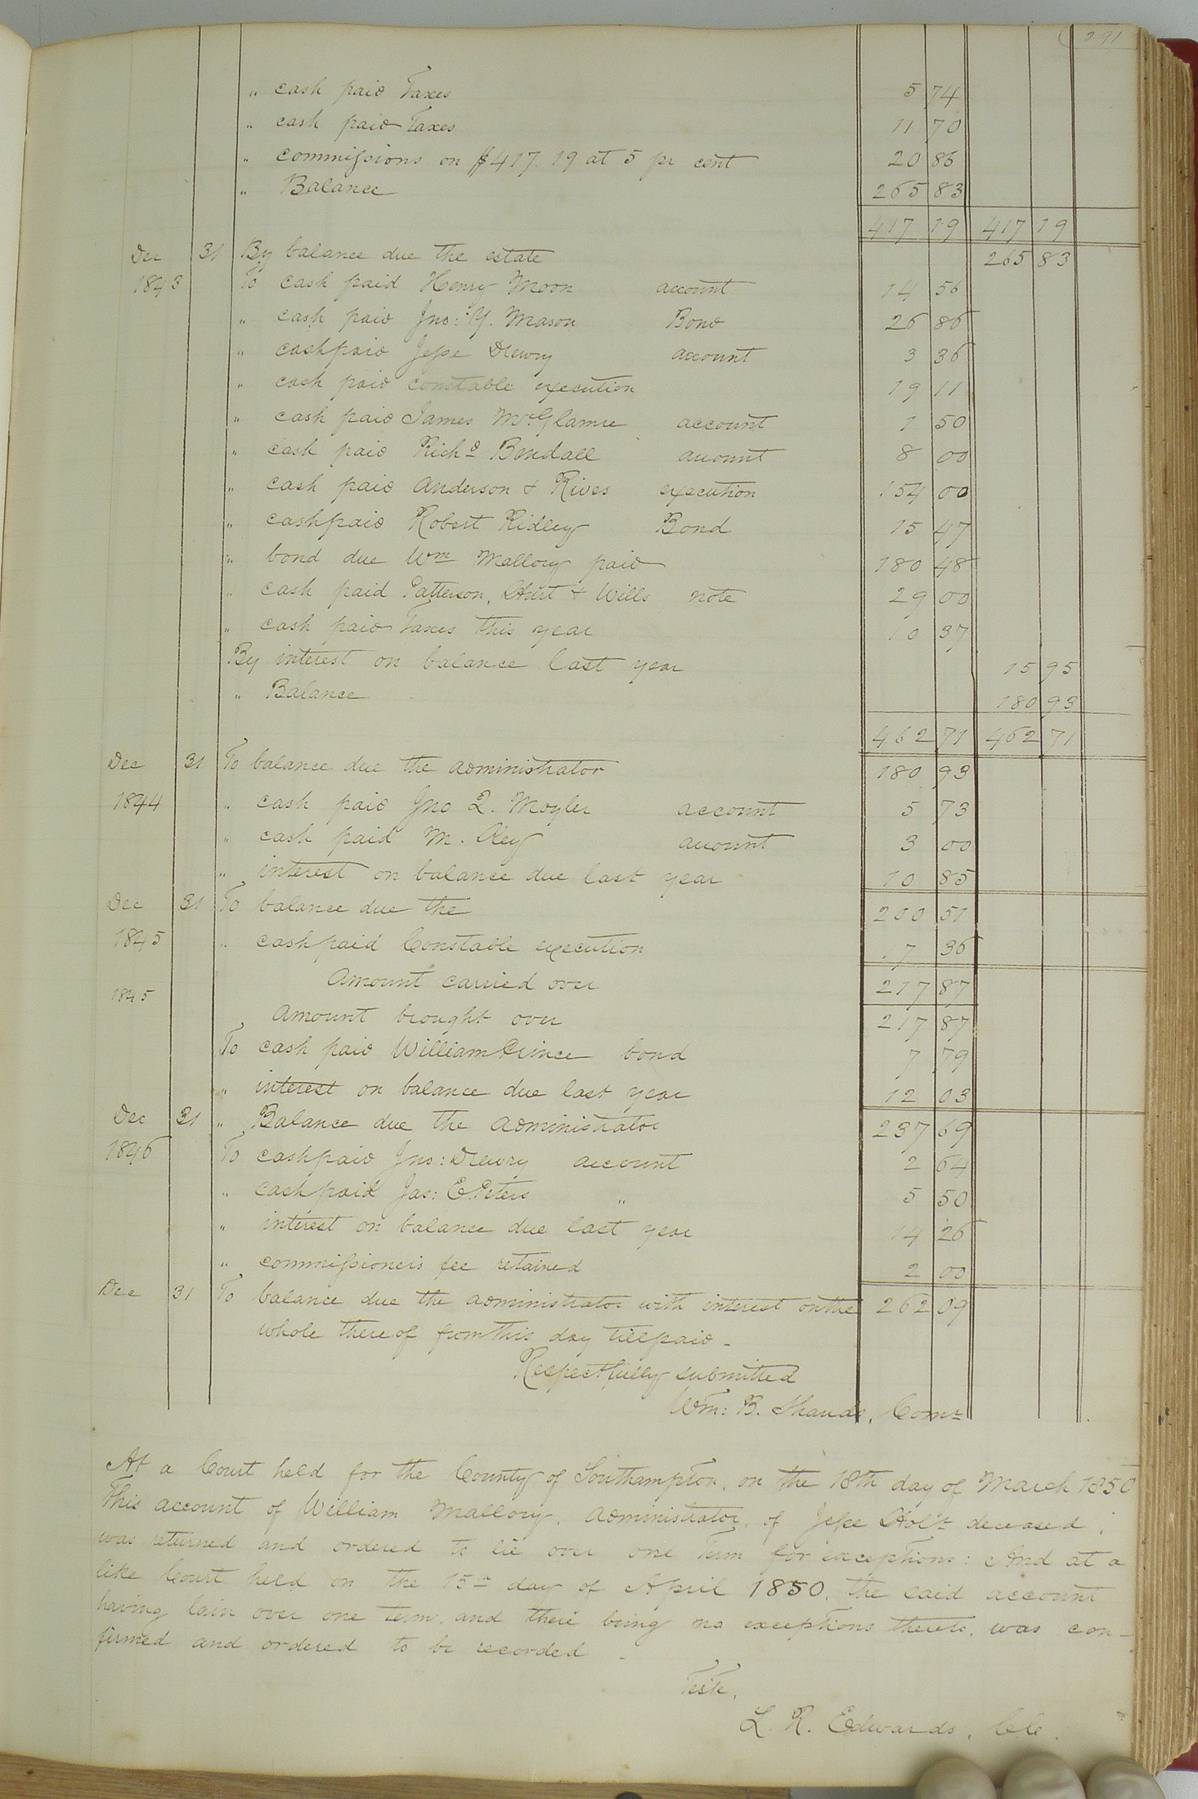 291
" cash paid Taxes 5 74
" cash paid Taxes 11 70
" commissions on $417.19 at 5 pr cent 20 86
" Balance 265 83
417 19 417 19
Dec 31 By balance due the estate 265 83
1843 To cash paid Henry Moon account 14 56
" cash paid Jno: Y. Mason Bond 26 86
" cash paid Jesse Drewry account 3 36
" cash paid constable execution 19 11
" cash paid James McGlamre account 1 50
" cash paid Richd Bendall account 8 00
" cash paid Anderson & Rives execution 154 00
" cash paid Robert Ridley Bond 15 47
" bond due Wm Mallory paid 180 48
" cash paid Patterson, Hurt & Wills note 29 00
" cash paid Taxes this year 10 37
By interest on balance last year 15 95
" Balance 180 93
462 71 462 71
Dec 31 To balance due the administrator 180 93
1844 " cash paid Jno Q. Moyler account 5 73
" cash paid M. Rey account 3 00
" interest on balance due last year 10 85
Dec 31 To balance due the 200 51
1845 " cash paid Constable execution 17 36
Amount carried over 217 87
1845
Amount brought over 217 87
To cash paid William Prince bond 7 79
" interest on balance due last year 12 03
Dec 31 " Balance due the administrator 237 69
1846 To cash paid Jno: Drewry account 2 64
" cash paid Jas: E. Peters " 5 50
" interest on balance due last year 14 26
" commissioneis fee retained 2 00
Dec 31 To balance due the administrator with interest on the 262 09
whole thereof from this day till paid -
Respectfully submitted
Wm: B. Shands, Comr
At a Court held for the County of Southampton, on the 18th day of March 1850
This account of William Mallory, administrator, of Jesse Holt deceased,
was returned and ordered to lie over one Term for exceptions: And at a
like Court held on the 15th day of April 1850, the said account
having lain over one term, and there being no exceptions thereto, was con-
firmed and ordered to be recorded -
Teste,
L. R. Edwards, Clc.